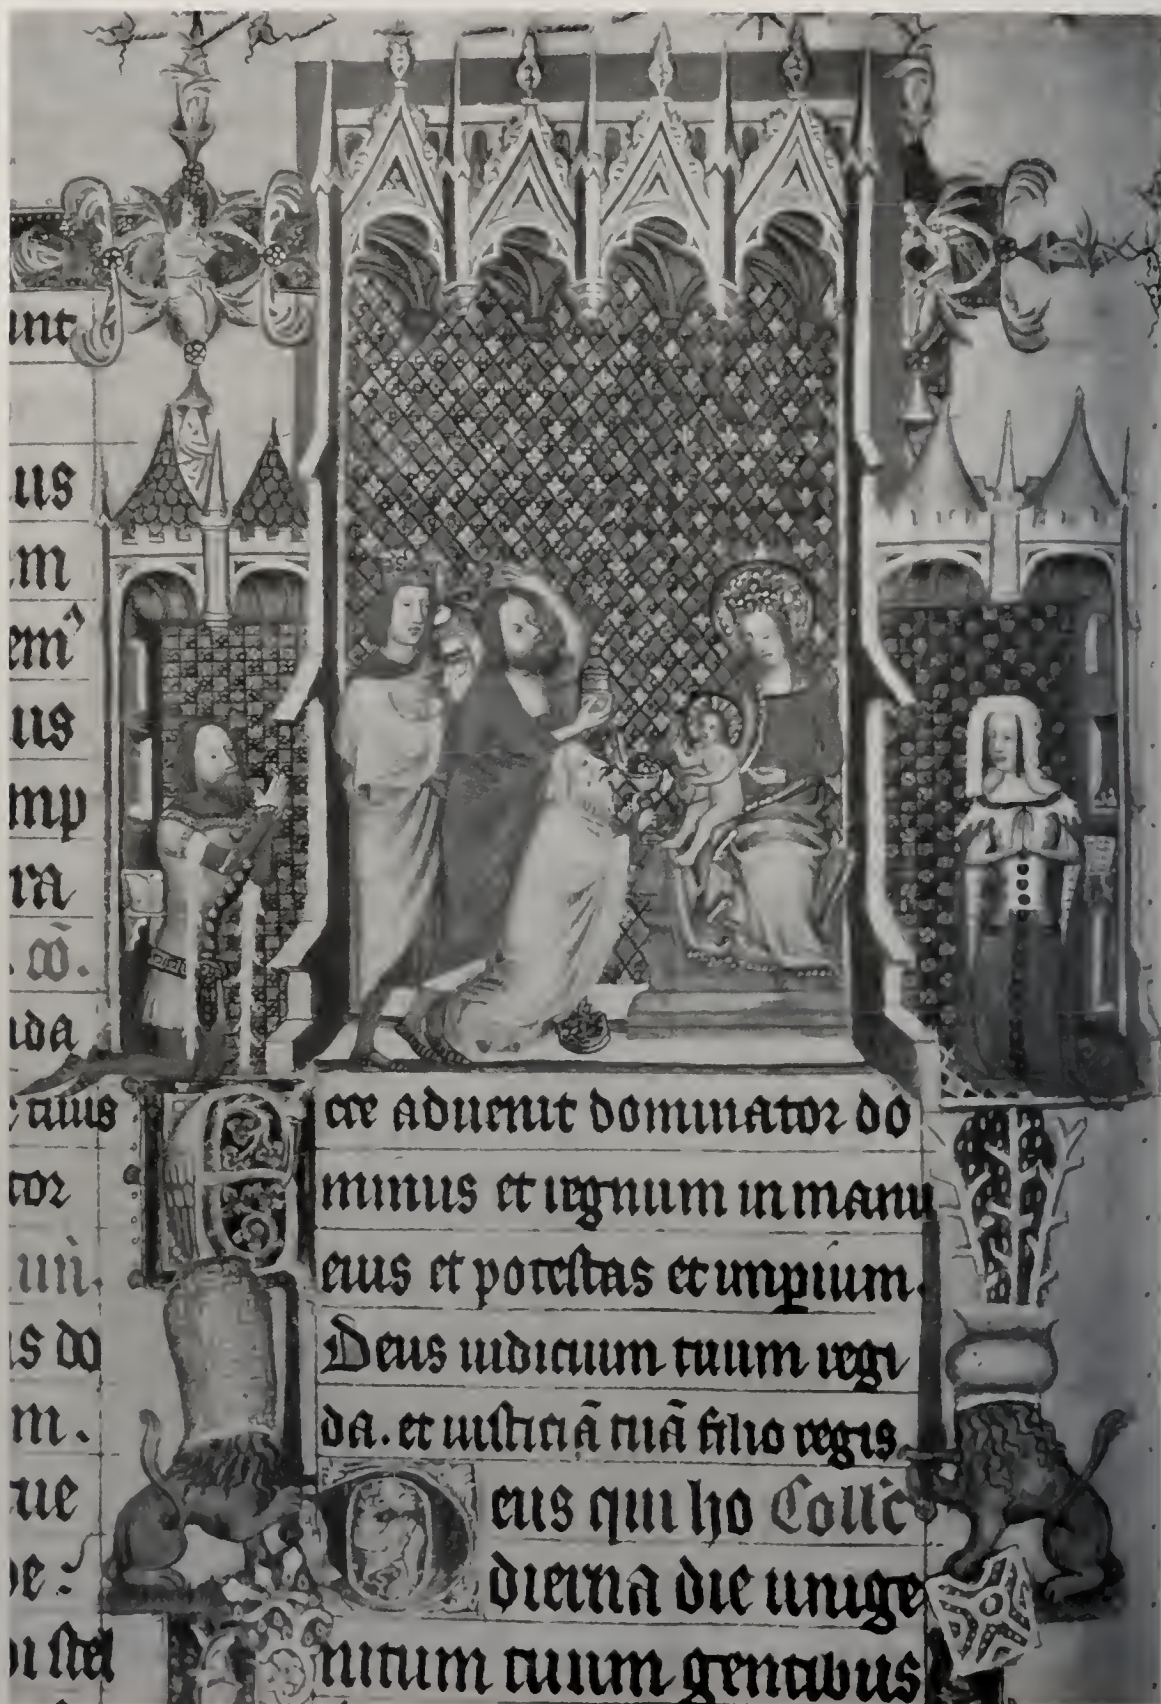 unt
us
em
us
mp
ra
cō.
da
cuius
tor
s do
m.
cue
pe:
oi stel
Ecce aduenit dominator do
minus et regnum in manu
eius et potestas et impium.
Deus iudicium tuum regi
da. et iusticiā tuā filio regis.
Deus qui ho Collc̄
dierna die unige
nitum tuum gentibus